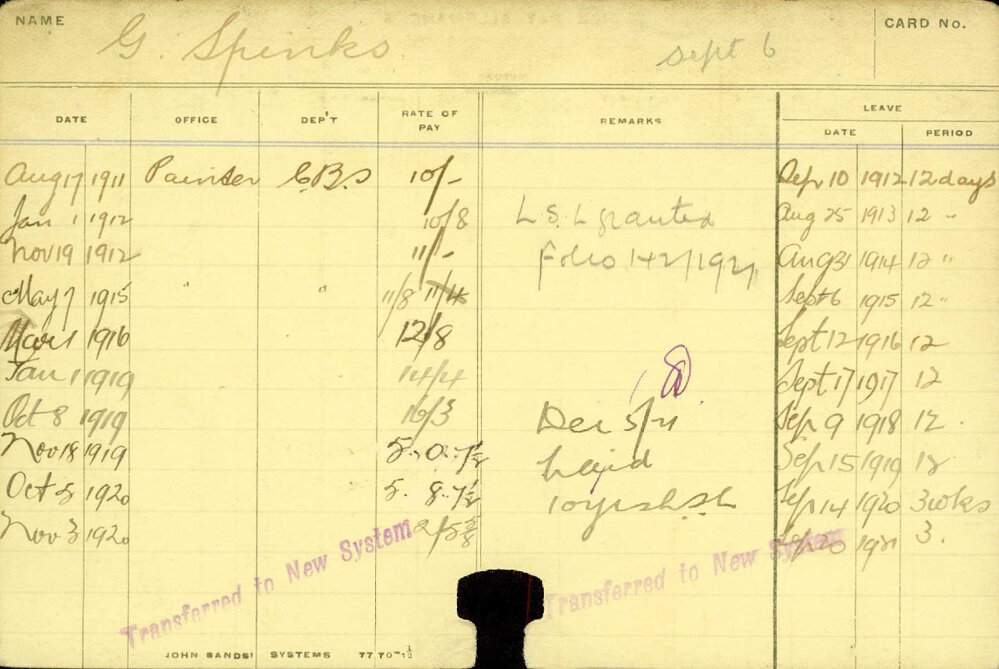 NAME G. Spinks Sept 6 CARD No.
LEAVE
DATE OFFICE DEP'T RATE OF PAY REMARKS DATE PERIOD
Aug 17 1911 Painter 10/- Sep 10 1912 12 days
Jan 1 1912 10/8 L.S.L granted Aug 25 1913 12 "
Nov 19 1912 11/- folio 142/1921 Aug 31 1914 12 "
May 7 1915 " " 11/8 11/4 Sept 6 1915 12 "
Mar 1 1916 12/8 Sept 12 1916 12
Jan 1 1919 14/4 Sept 17 1917 12
Oct 8 1919 16/3 Dec 5/21 Sep 9 1918 12
Nov 18 1919 5. 0. 7½ paid Sep 15 1919 12
Oct 5 1920 5. 8. 7½ Sep 14 1920 3 wks
Nov 3 1920 Sep 20 1921 3.
Transferred to New System
Transferred to New System
JOHN SANDS' SYSTEMS